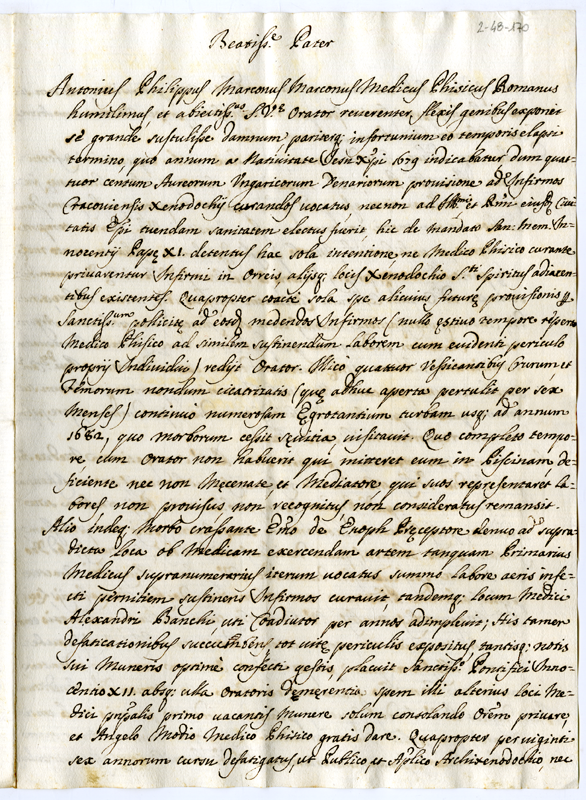 2-48-170
Beatiss.e Pater
Antonius Philippus Marconus Marconus Medicus Phisicus Romanus
humilimus, et abiectiss.us S.V.æ Orator reuerenter flexis genibus exponit
se grande sustulisse damnum, pariterq; infortunium eo temporis elapsi
termino, quo annum a Natiuitate Jesu Xpi 1679 indicabatur dum quat=
tuor centum Aureorum Ungaricorum Denariorum prouisione ad Infirmos
Cracouiensis Xenodochij curandos uocatus necnon ad et eiusq; Ciui
tatis Epi tuendam sanitatem electus fuerit, hic de mandato San: Mem: In=
nocentij Papę XI. detentus hac sola intentione ne Medico Phisico curante
priuarentur Infirmi in Orreis alijsq; locis Xenodochio S.ti Spiritus adiacen=
tibus existentes. Quapropter coacte sola spe alicuius futurę prouisionis
Sanctiss.um pollicitę ad eosd. medendos Infirmos (nullo ęstiuo tempore
Medico Phisico ad similem sustinendum laborem cum euidenti periculo
proprij Indiuidui) redijt Orator. Illico quatuor Vessicantibus Crurum et
Femorum nondum cicatrizatis (quę adhuc aperta pertulit per sex
Menses) continuo numerosam Ęgrotantium turbam usq; ad annum
1682, quo morborum cessit sęuitia uisitauit. Quo completo tempo=
re cum Orator non habuerit qui mitteret eum in Piscinam de=
ficiente nec non Mecenate, et Mediatore qui suos repręsentaret la=
bores non prouisus non recognitus non consideratus remansit.
Alio indeq; Morbo crassante Emo de Enoph Pręceptore denuo ad supra=
dicta loca ob Medicam exercendam artem tanquam Primarius
Medicus supranumerarius iterum uocatus summo labore aeris infe=
cti pernitiem sustineris Infirmos curauit, tandemq; locum Medici
Alexandri Banchi, uti Coadiutor per annos adimpleuit; His tamen
defaticationibus succumbens, tot uitę periculis expositus, tantisq; notis
sui Muneris optimè confecti gestis, placuit Sanctiss.o Pontifici Inno=
centio XII. absq; ulla Oratoris demerentia spem illi alterius loci Me=
dici pnpalis primo uacantis Munere solum consolando Orem priuare,
et Angelo Modio Medico Phisico gratis dare. Quapropter per uiginti
sex annorum cursu defatigatus, ut Publico, et Aplico Archixenodochio, nec